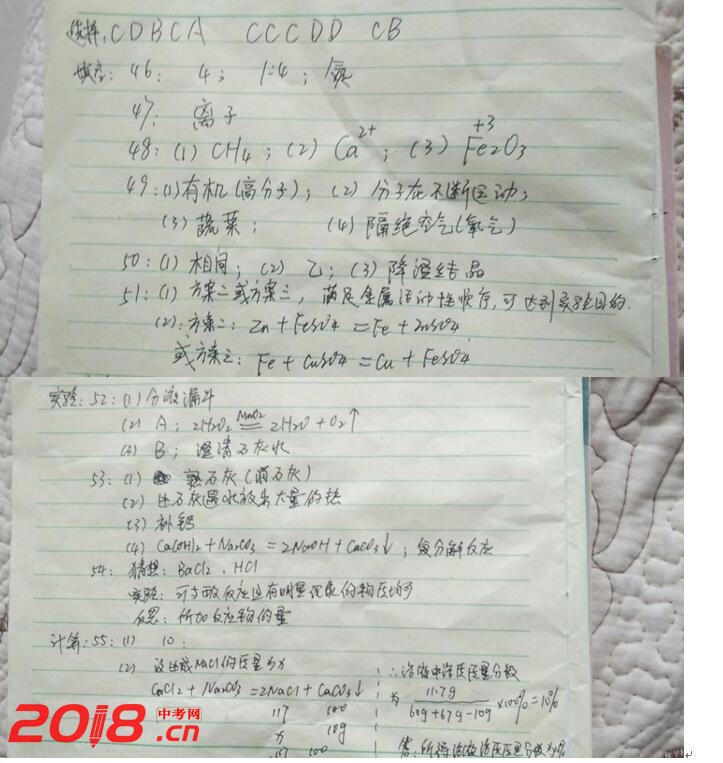 选择: CDBCA CCCDD CB
填空: 46: 4; 1:4; 1氮
47: 离子
48: (1) CH4; (2) Ca²⁺; (3) Fe2O3 +3
49: (1) 有机(高分子); (2) 分子在不断运动;
(3) 蔬菜; (4) 隔绝空气(氧气)
50: (1) 相同; (2) 乙; (3) 降温结晶
51: (1) 方案二或方案三, 满足金属活动性顺序, 可达到实验目的.
(2): 方案二: Zn + FeSO4 = Fe + ZnSO4
或方案三: Fe + CuSO4 = Cu + FeSO4
实验: 52: (1) 分液漏斗
(2) A; 2H2O2 MnO2 = 2H2O + O2↑
(3) B; 澄清石灰水
53: (1) 熟石灰(消石灰)
(2) 生石灰遇水放出大量的热
(3) 补钙
(4) Ca(OH)2 + Na2CO3 = 2NaOH + CaCO3↓; 复分解反应
54: 猜想: BaCl2、HCl
实验: 可与酸反应且有明显现象的物质均可
反思: 所加反应物的量
计算: 55: (1) 10;
(2) 设生成NaCl的质量为x
CaCl2 + Na2CO3 = 2NaCl + CaCO3↓
117 100
x 10g
117 100
∴溶液中溶质质量分数
为 11.7g / 60g+67g-10g ×100% = 10%
答: 所得溶液溶质质量分数为
2018.cn
中考网